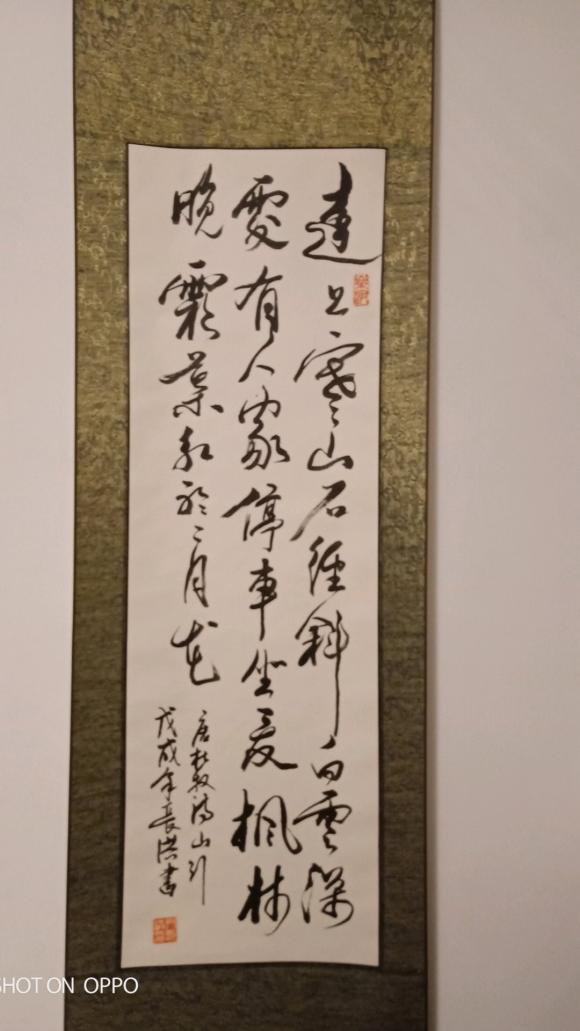 遠上寒山石徑斜白雲深
處有人家停車坐愛楓林
晚霜葉紅於二月花
唐杜牧詩山行
戊戌年長洪書
SHOT ON OPPO